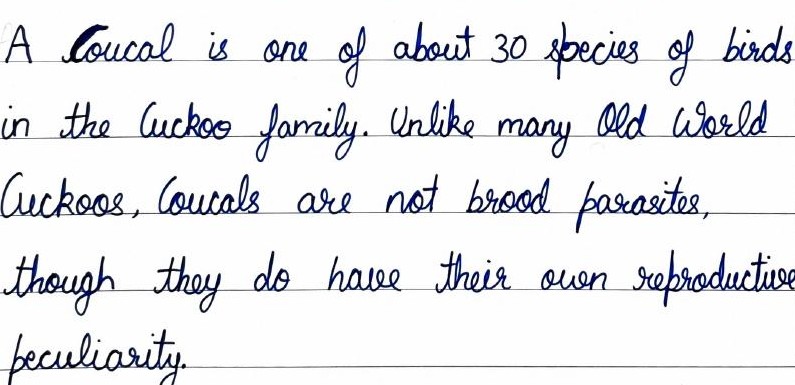 A Coucal is one of about 30 species of birds
in the Cuckoo family. Unlike many Old World
Cuckoos, Coucals are not brood parasites,
though they do have their own reproductive
peculiarity.